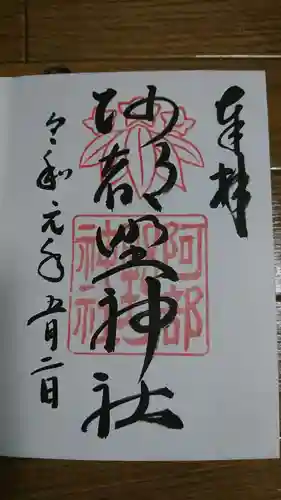 奉拝
阿部野神社
令和元年五月二日
阿部野神社